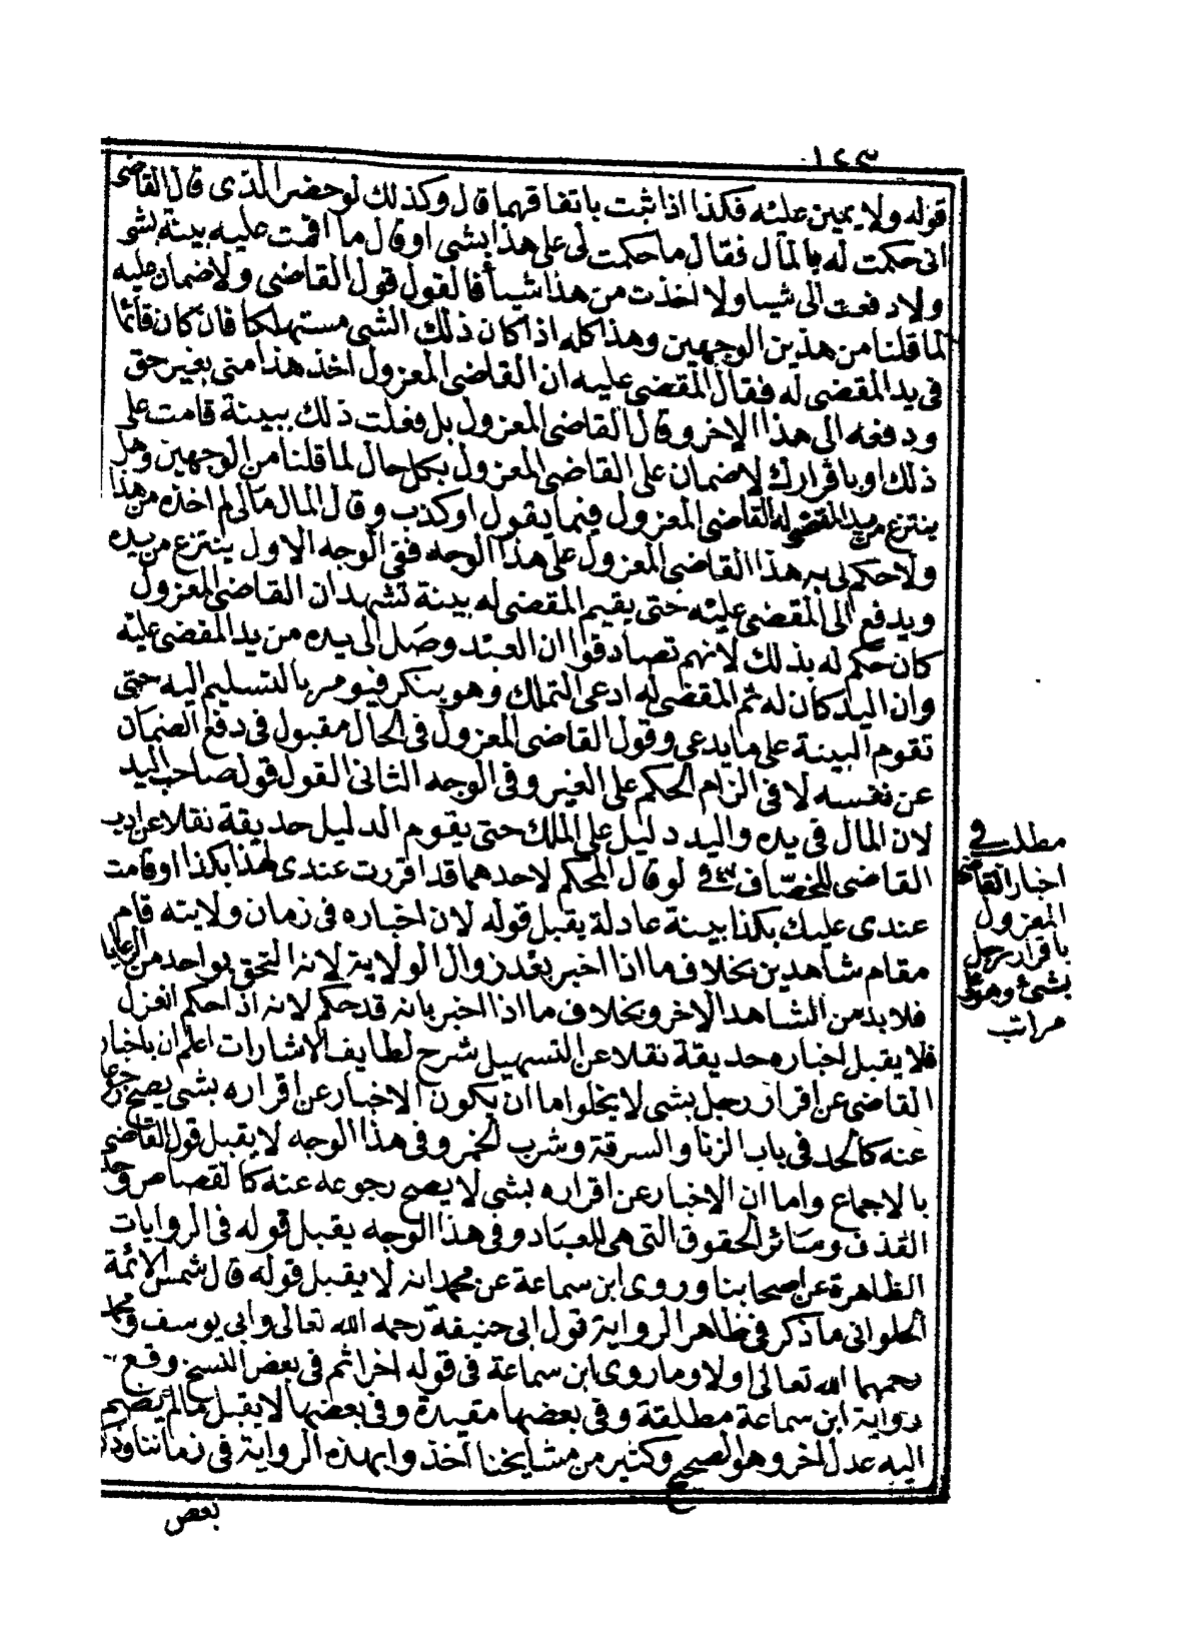 قوله ولا يمين عليه فكذا اذا ثبت باتفاقهما قال وكذلك لو حضر الذى قال القاضى
انى حكمت له بالمال فقال ما حكمت لى على هذا بشى او قال ما اقمت عليه بينة بشى
ولا دفعت الى شيا ولا اخذت من هذا شيأ فالقول قول القاضى ولا ضمان عليه
لما قلنا من هذين الوجهين وهذا كله اذا كان ذلك الشى مستهلكا فان كان قائما
فى يد المقضى له فقال المقضى عليه ان القاضى المعزول اخذ هذا منى بغير حق
ودفعه الى هذا الاخر وقال القاضى المعزول بل فعلت ذلك ببينة قامت على
ذلك او باقرارك لا ضمان على القاضى المعزول بكل حال لما قلنا من الوجهين وهل
ينتزع من يد المقضى له القاضى المعزول فيما يقول او كذب وقال المال مالى لم اخذه من هذا
ولا حكم لى به هذا القاضى المعزول على هذا الوجه ففى الوجه الاول ينتزع من يده
ويدفع الى المقضى عليه حتى يقيم المقضى له بينة تشهد ان القاضى المعزول
كان حكم له بذلك لانهم تصادقوا ان العبد وصل الى يده من يد المقضى عليه
وان اليد كان له ثم المقضى له ادعى التملك وهو ينكر فيومر بالتسليم اليه حتى
تقوم البينة على ما يدعى وقول القاضى المعزول فى الحال مقبول فى دفع الضمان
عن نفسه لا فى الزام الحكم على الغير وفى الوجه الثانى القول قول صاحب اليد
لان المال فى يده واليد دليل على الملك حتى يقوم الدليل حديقة نقلا عن ادب
القاضى للخصاف لو قال المحكم لاحدهما قد اقررت عندى لهذا بكذا او قامت
عندى عليك بكذا بينة عادلة يقبل قوله لان اخباره فى زمان ولايته قام
مقام شاهدين بخلاف ما اذا اخبر بعد زوال الولاية لانه التحق بواحد من الرعايا
فلا بد من الشاهد الاخر وبخلاف ما اذا اخبر بانه قد حكم لانه اذا حكم انعزل
فلا يقبل اخباره حديقة نقلا عن التسهيل شرح لطايف الاشارات اعلم ان باخبار
القاضى عن اقرار رجل بشى لا يخلوا اما ان يكون الاخبار عن اقراره بشى يصح رجوعه
عنه كالحد فى باب الزنا والسرقة وشرب الخمر وفى هذا الوجه لا يقبل قول القاضى
بالاجماع واما ان الاخبار عن اقراره بشى لا يصح رجوعه عنه كالقصاص وحد
القذف وسائر الحقوق التى هى للعباد وفى هذا الوجه يقبل قوله فى الروايات
الظاهرة عن اصحابنا وروى ابن سماعة عن محمد انه لا يقبل قوله قال شمس الائمة
الحلوانى ما ذكر فى ظاهر الرواية قول ابى حنيفة رحمه الله تعالى وابى يوسف ومحمد
رحمهما الله تعالى اولا وما روى ابن سماعة فى قوله اخرا ثم فى بعض النسخ وقع
رواية ابن سماعة مطلقة وفى بعضها مقيدة وفى بعضها لا يقبل مالم ينضم
اليه عدل اخر وهو الصحيح وكثير من مشايخنا اخذوا بهذه الرواية فى زماننا وذكر
بعض
مطلب فى
اخبار القاضى
المعزول
باقرار رجل
بشئ وهو على
مراتب